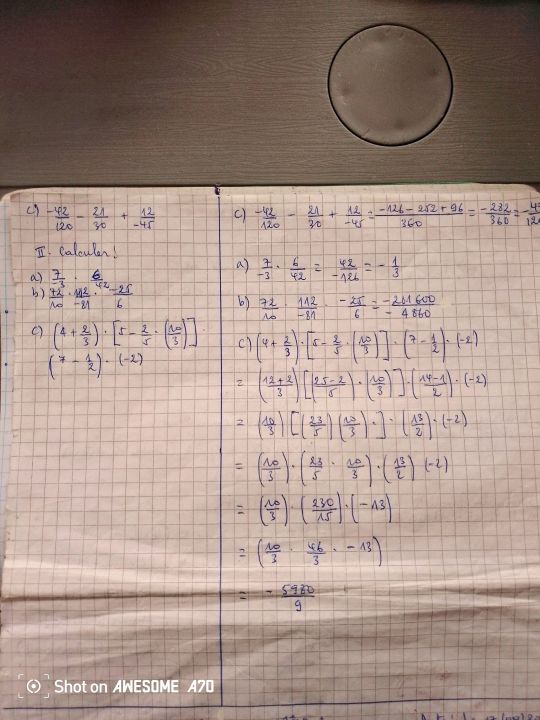 c) -42/120 - 21/30 + 12/-45
II. Calculer!
a) 7/-3 · 6/42
b) 72/10 · 112/-81 · -25/6
c) (4 + 2/3) · [5 - 2/5 · (10/3)] ·
(7 - 1/2) · (-2)
c) -42/120 - 21/30 + 12/-45 = -126 - 252 + 96/360 = -232/360 =
a) 7/-3 · 6/42 = 42/-126 = - 1/3
b) 72/10 · 112/-81 · -25/6 = -201600/-4860
c) (4 + 2/3) · [5 - 2/5 · (10/3)] · (7 - 1/2) · (-2)
= (12+2/3) · [(25-2/5) · (10/3)] · (14-1/2) · (-2)
= (10/3) [(23/5) (10/3) · ] · (13/2) · (-2)
= (10/3) · (23/5 · 10/3) · (13/2) (-2)
= (10/3) · (230/15) · (-13)
= (10/3 · 46/3 · -13)
= - 5980/9
Shot on AWESOME A70